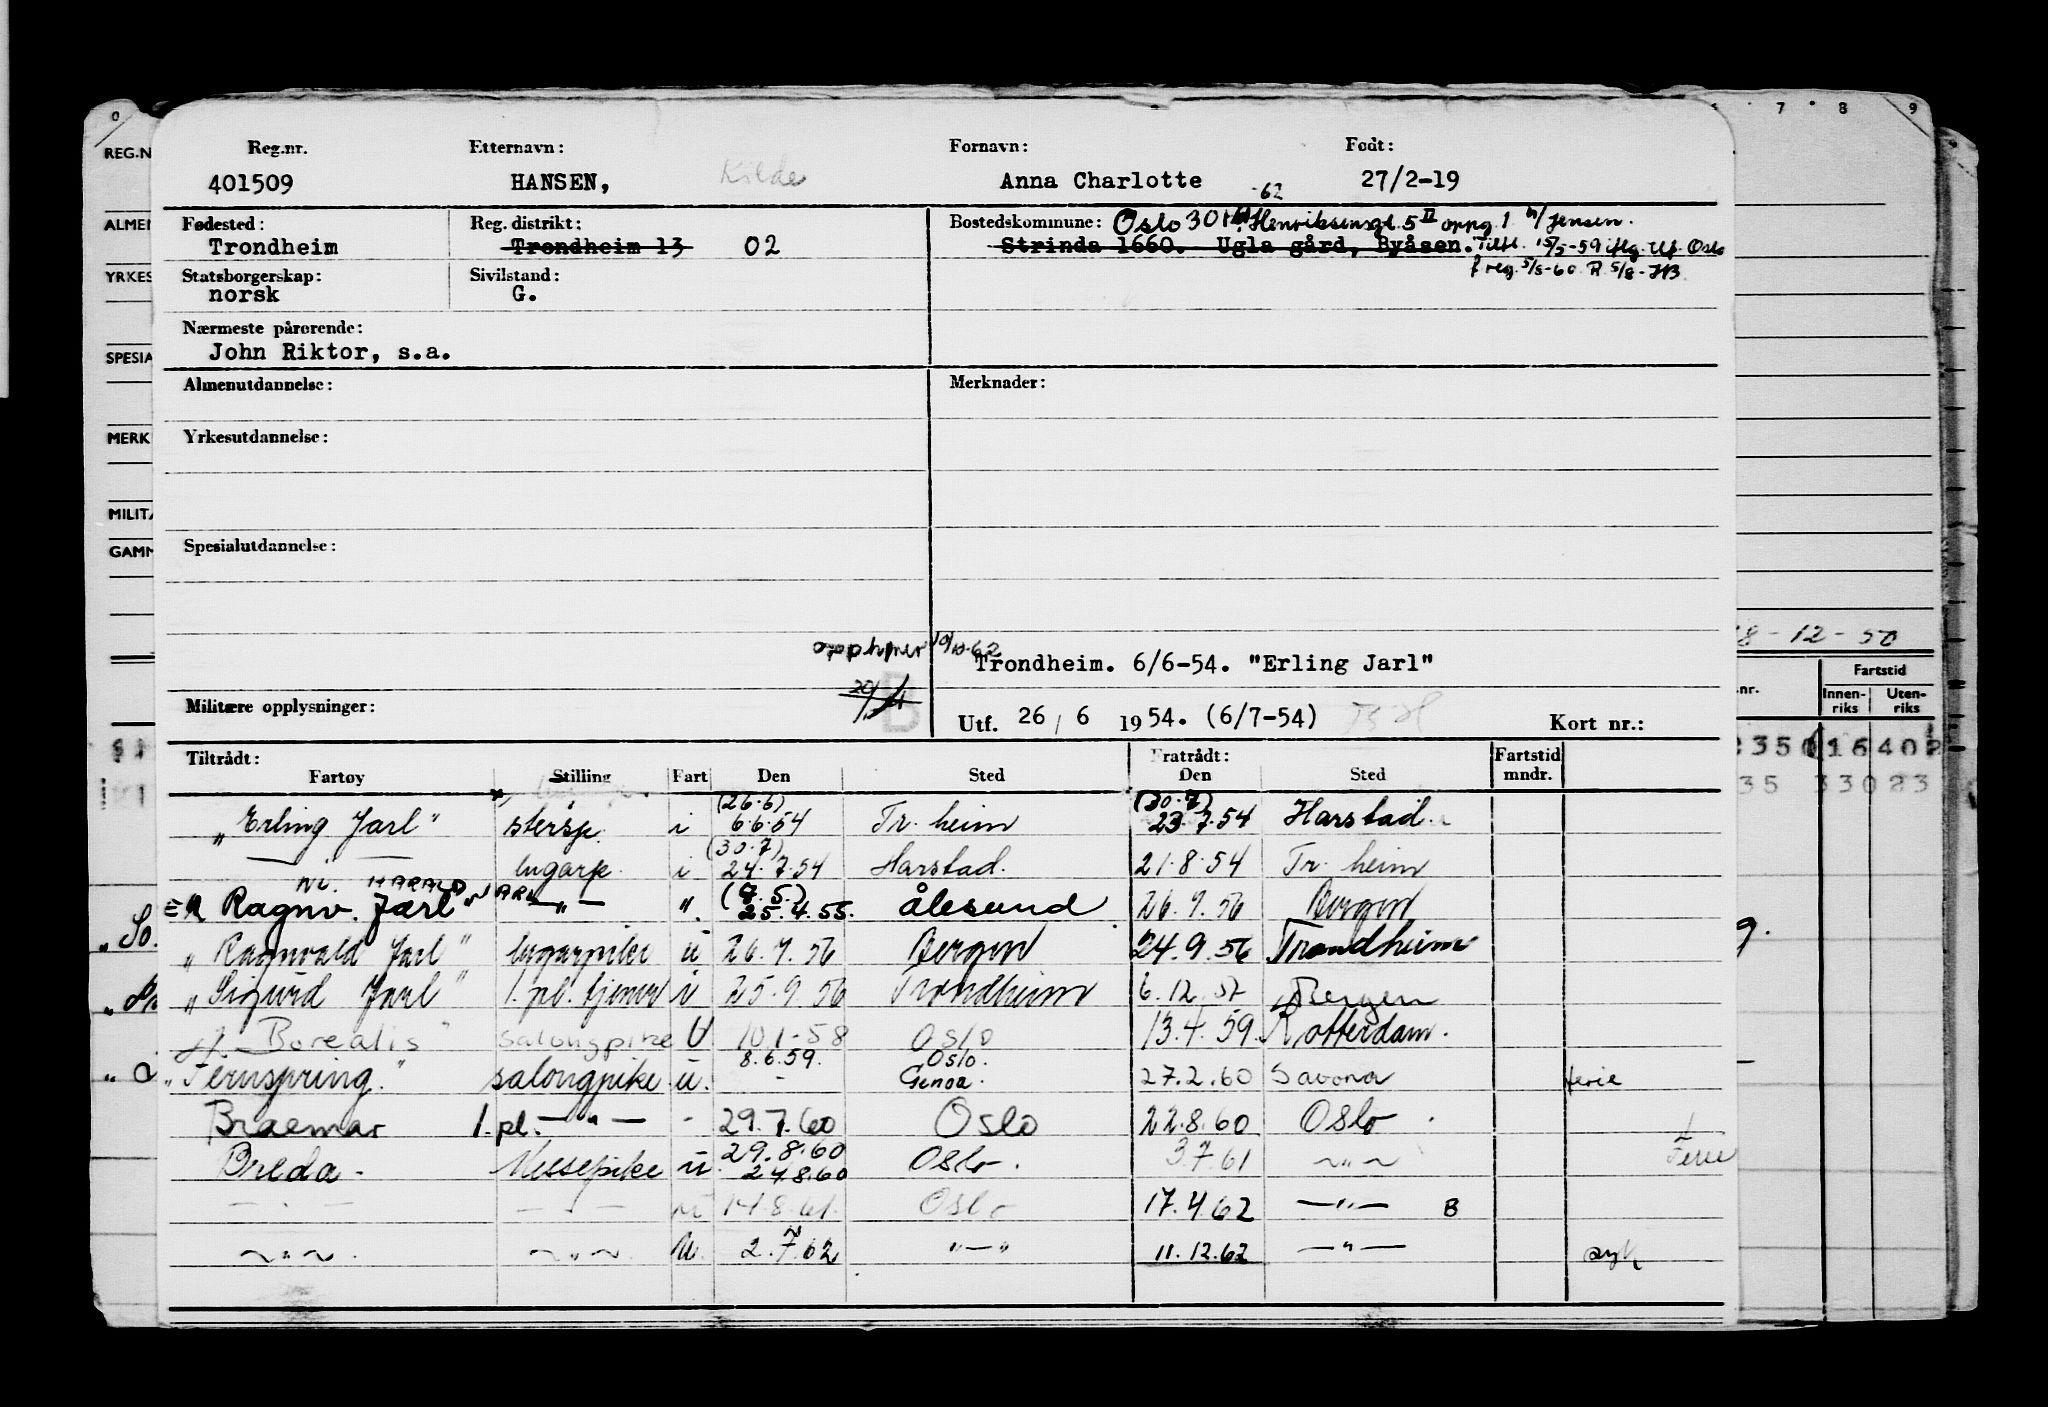 0 7 8 9
REG.N
Reg.nr. Etternavn: Fornavn: Født:
401509 HANSEN, Kilde Anna Charlotte 27/2-19
62
ALMEN
Fødested: Reg. distrikt: Bostedskommune: Oslo 301 Henriksensgt. 5 II oppg. 1 h/ Jensen.
Trondheim Trondheim 13 02 Strinda 1660. Ugla gård, Byåsen. Tilfl. 15/5-59 iflg. Uf. Oslo
YRKES
Statsborgerskap: Sivilstand: f reg. 5/5-60 R 5/8- HB
norsk G.
Nærmeste pårørende:
SPESIA
John Riktor, s.a.
Almenutdannelse: Merknader:
MERK
Yrkesutdannelse:
MILITÆ
GAMM
Spesialutdannelse:
8-12-50
opphører 10/12-62
Trondheim. 6/6-54. "Erling Jarl"
Fartstid
.nr. Innen-riks Uten-riks
Militære opplysninger: B Utf. 26 / 6 1954. (6/7-54) Kort nr.:
Tiltrådt: Fratrådt:
Fartøy Stilling Fart Den Sted Den Sted Fartstid mndr.
(26.6) (30.7)
"Erling Jarl" stersp. i 6.6.54 Tr. heim 23.7.54 Harstad.
(30.7)
— — lugarp. i 24.7.54 Harstad. 21.8.54 Tr. heim
HARALD JARL (7.5.)
Ragnv. Jarl" —"— ". 25.4.55. Ålesund 26.7.56 Bergen
"So.
"Ragnvald Jarl" lugarpike u 26.7.56 Bergen 24.9.56 Trondheim
"Sigurd Jarl" 1. pl. tjener i 25.9.56 Trondheim 6.12.57 Bergen
Borealis" salongpike U 10.1-58 Oslo 13.4.59 Rotterdam.
8.6.59. Oslo.
"Fernspring." salongpike u. - Genoa. 27.2.60 Savona ferie
Braemar 1. pl. —"— - 29.7.60 Oslo 22.8.60 Oslo
29.8.60
Breda - Messepike u. 27.8.60 Oslo. 3.7.61 ~"~ Ferie
— " — — " — u 14.8.61. Oslo 17.4.62 —"— B
~"~. ~"~. u. 2.7.62 "—" 11.12.62 —"— syk